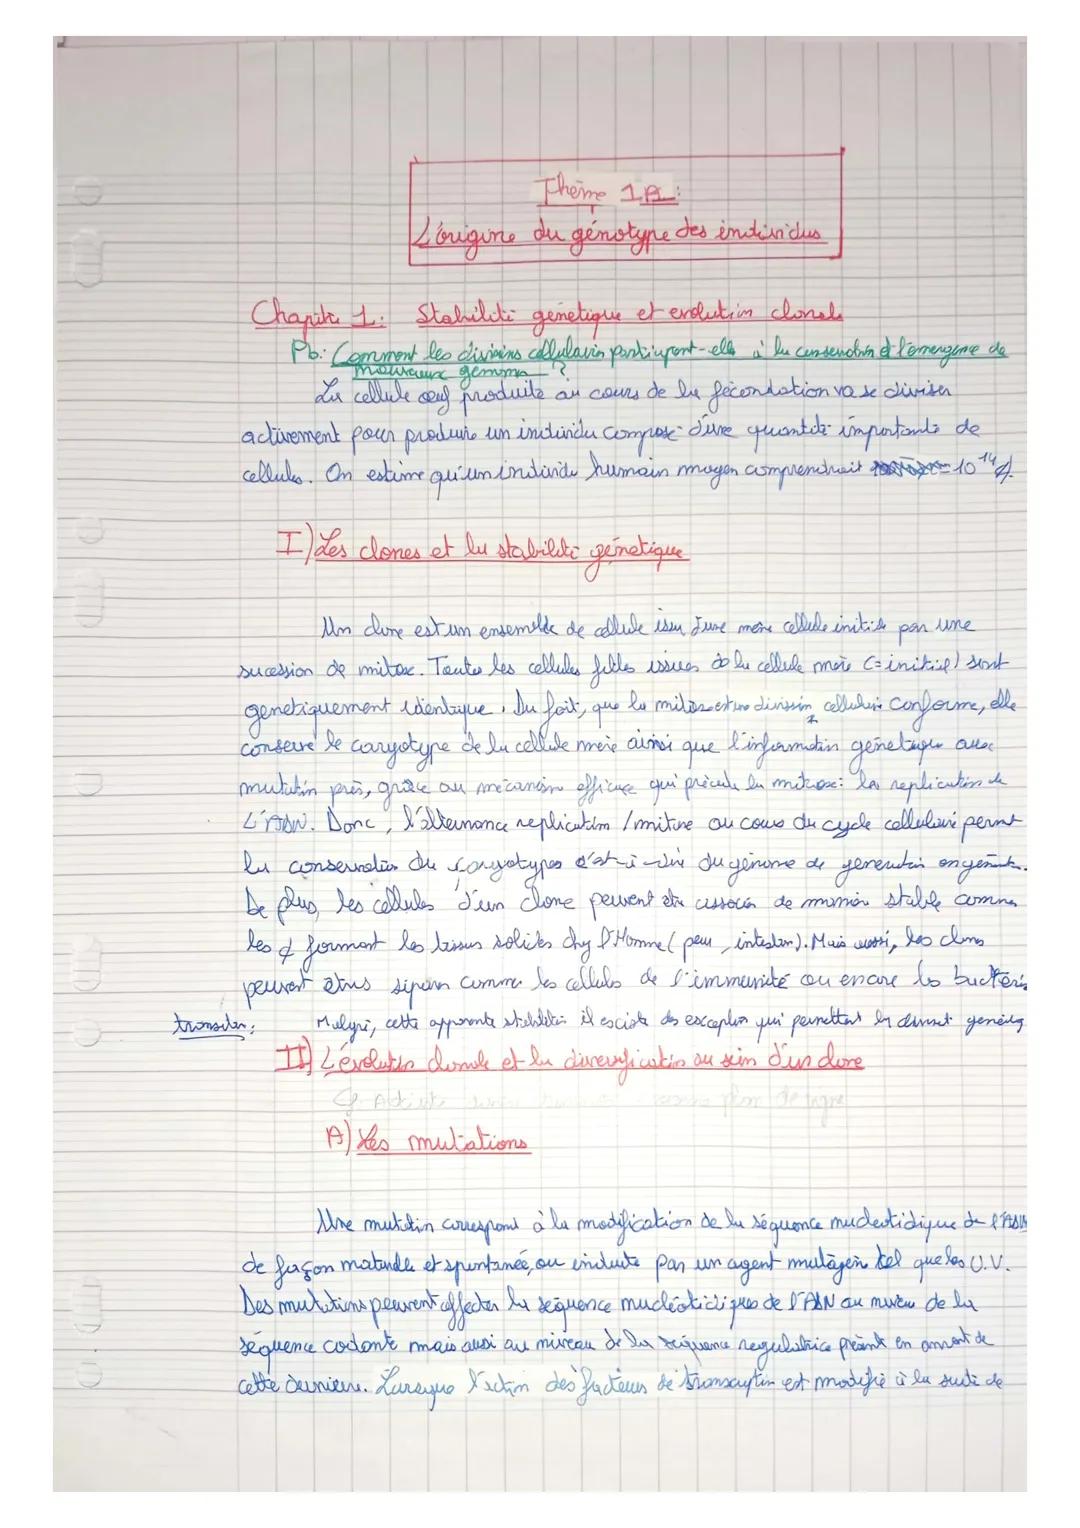 Thème 1A:
L'origine du génotype des individus
Chapitre 1: Stabilité génétique et evolution clonale
Pb: Comment les divisions cellulaires participent-elle à la conservation et l'émergence de
nouveaux ?
La cellule œuf produite au cours de la fécondation va se diviser
activement pour produire un individu composé d'une quantité importante de
cellules. On estime qu'un individu humain moyen comprendrait = 10^14 ¢.
I) Les clones et la stabilité génétique
Un clone est un ensemble de cellule issu d'une même cellule initiale par une
sucession de mitose. Toutes les cellules filles issues de la cellule mère (= initial) sont
genetiquement identique. Du fait, que la mitose est une division cellulaire conforme, elle
conserve le caryotype de la cellule mère ainsi que l'information génétique aux
mutation près, grâce au mécanism efficace qui précède la mitose: la replication de
L'ADN. Donc, l'alternance replication / mitose au cours du cycle cellulaire permet
la conservation du caryotypes c'est-à-dire du génome de generation en génerat.
De plus, les cellules d'un clone peuvent être associer de manière stable comme
les ¢ formant les tissus solides chez l'Homme (peau, intestin). Mais aussi, les clones
peuvent êtres séparer comme les cellules de l'immunité ou encore les bactéries
transition: Malgré, cette apparente stabilitée il existe des exception qui permettent la
II) L'évolution clonale et la diversification au sein d'un clone
A) Les mutations
Une mutation correspond à la modification de la séquence nucleotidique de l'ADN
de façon naturelle et spontanée, ou induite par un agent mutagène tel que les U.V.
Des mutations peuvent affecter la séquence nucléotidiques de l'ADN au niveau de la
séquence codante mais aussi au niveau de la séquence regulatrice présente en amont de
cette dernière. Lorsque l'action des facteurs de transcription est modifié à la suite de